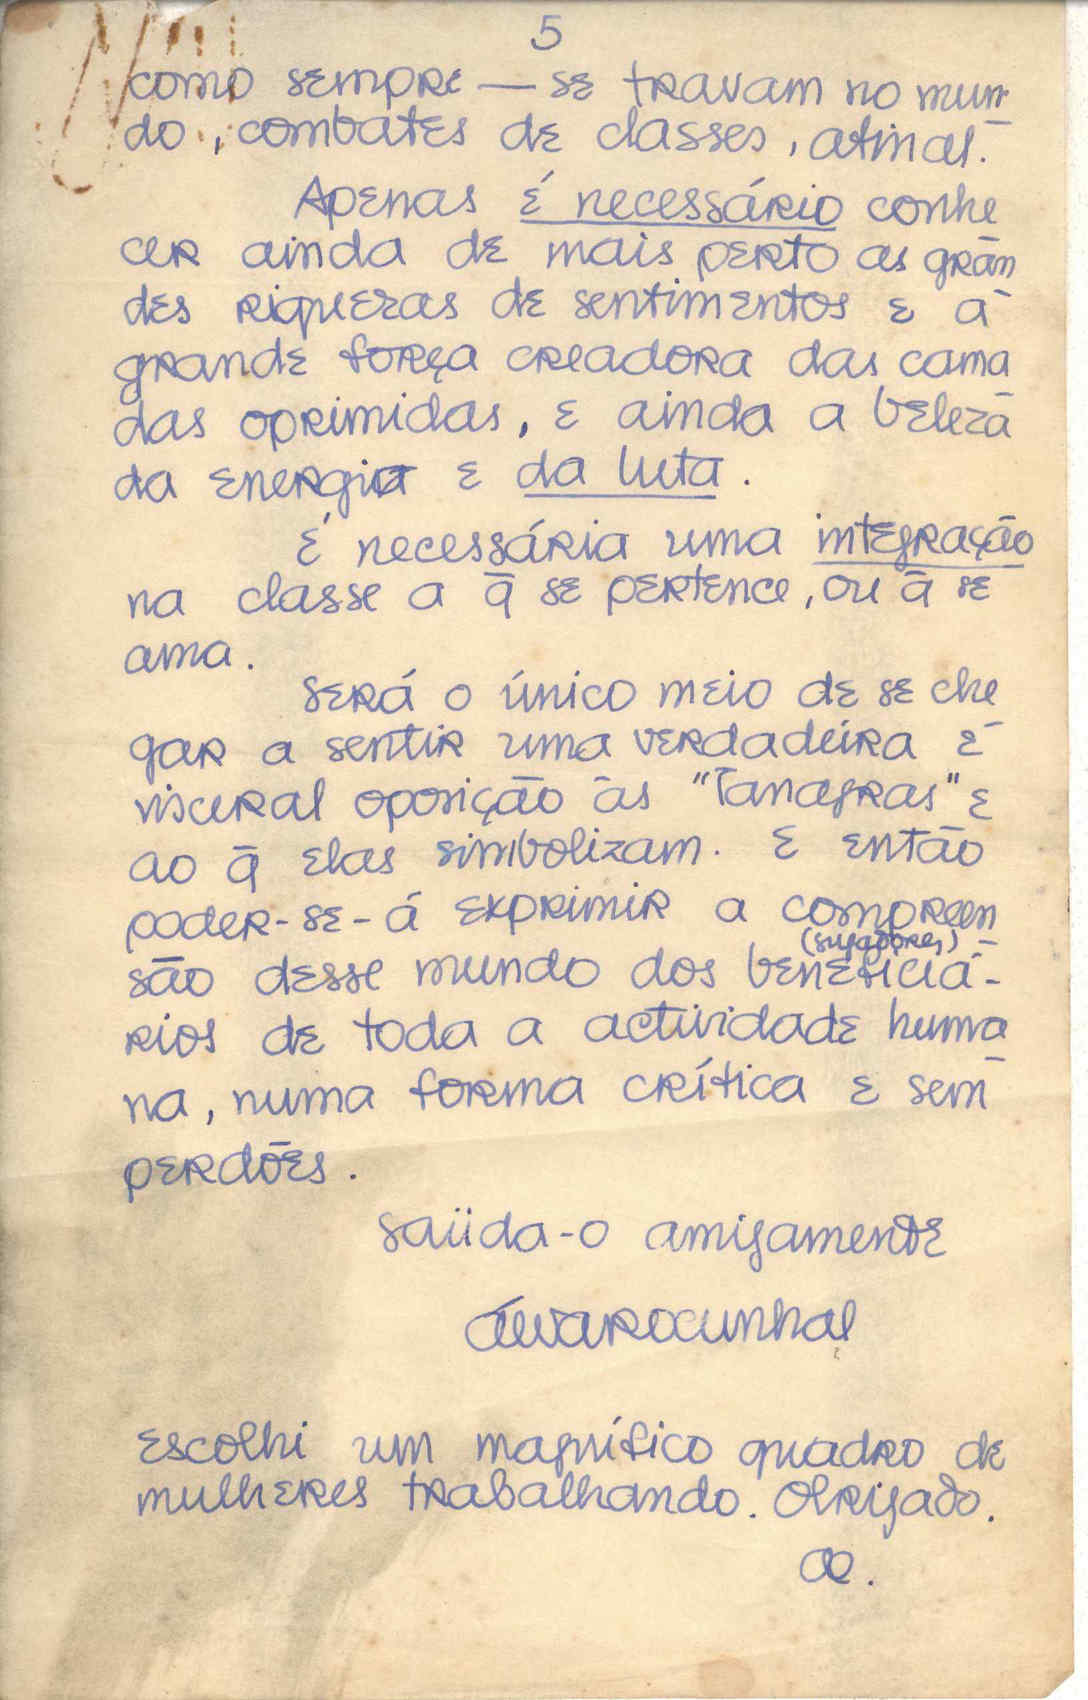 5
como sempre — se travam no mun-
do, combates de classes, afinal.
Apenas é necessário conhe
cer ainda de mais perto as gran
des riquezas de sentimentos e a
grande força creadora das cama
das oprimidas, e ainda a beleza
da energia e da luta.
É necessária uma integração
na classe a q̄ se pertence, ou q̄ se
ama.
Será o único meio de se che
gar a sentir uma verdadeira e
visceral oposição às "Tanagras" e
ao q̄ elas simbolizam. E então
poder-se-á exprimir a compreen
(sugadores)
são desse mundo dos beneficiá-
rios de toda a actividade huma
na, numa forma crítica e sem
perdões.
Saüda-o amigamente
Álvaro Cunhal
Escolhi um magnífico quadro de
mulheres trabalhando. Obrigado.